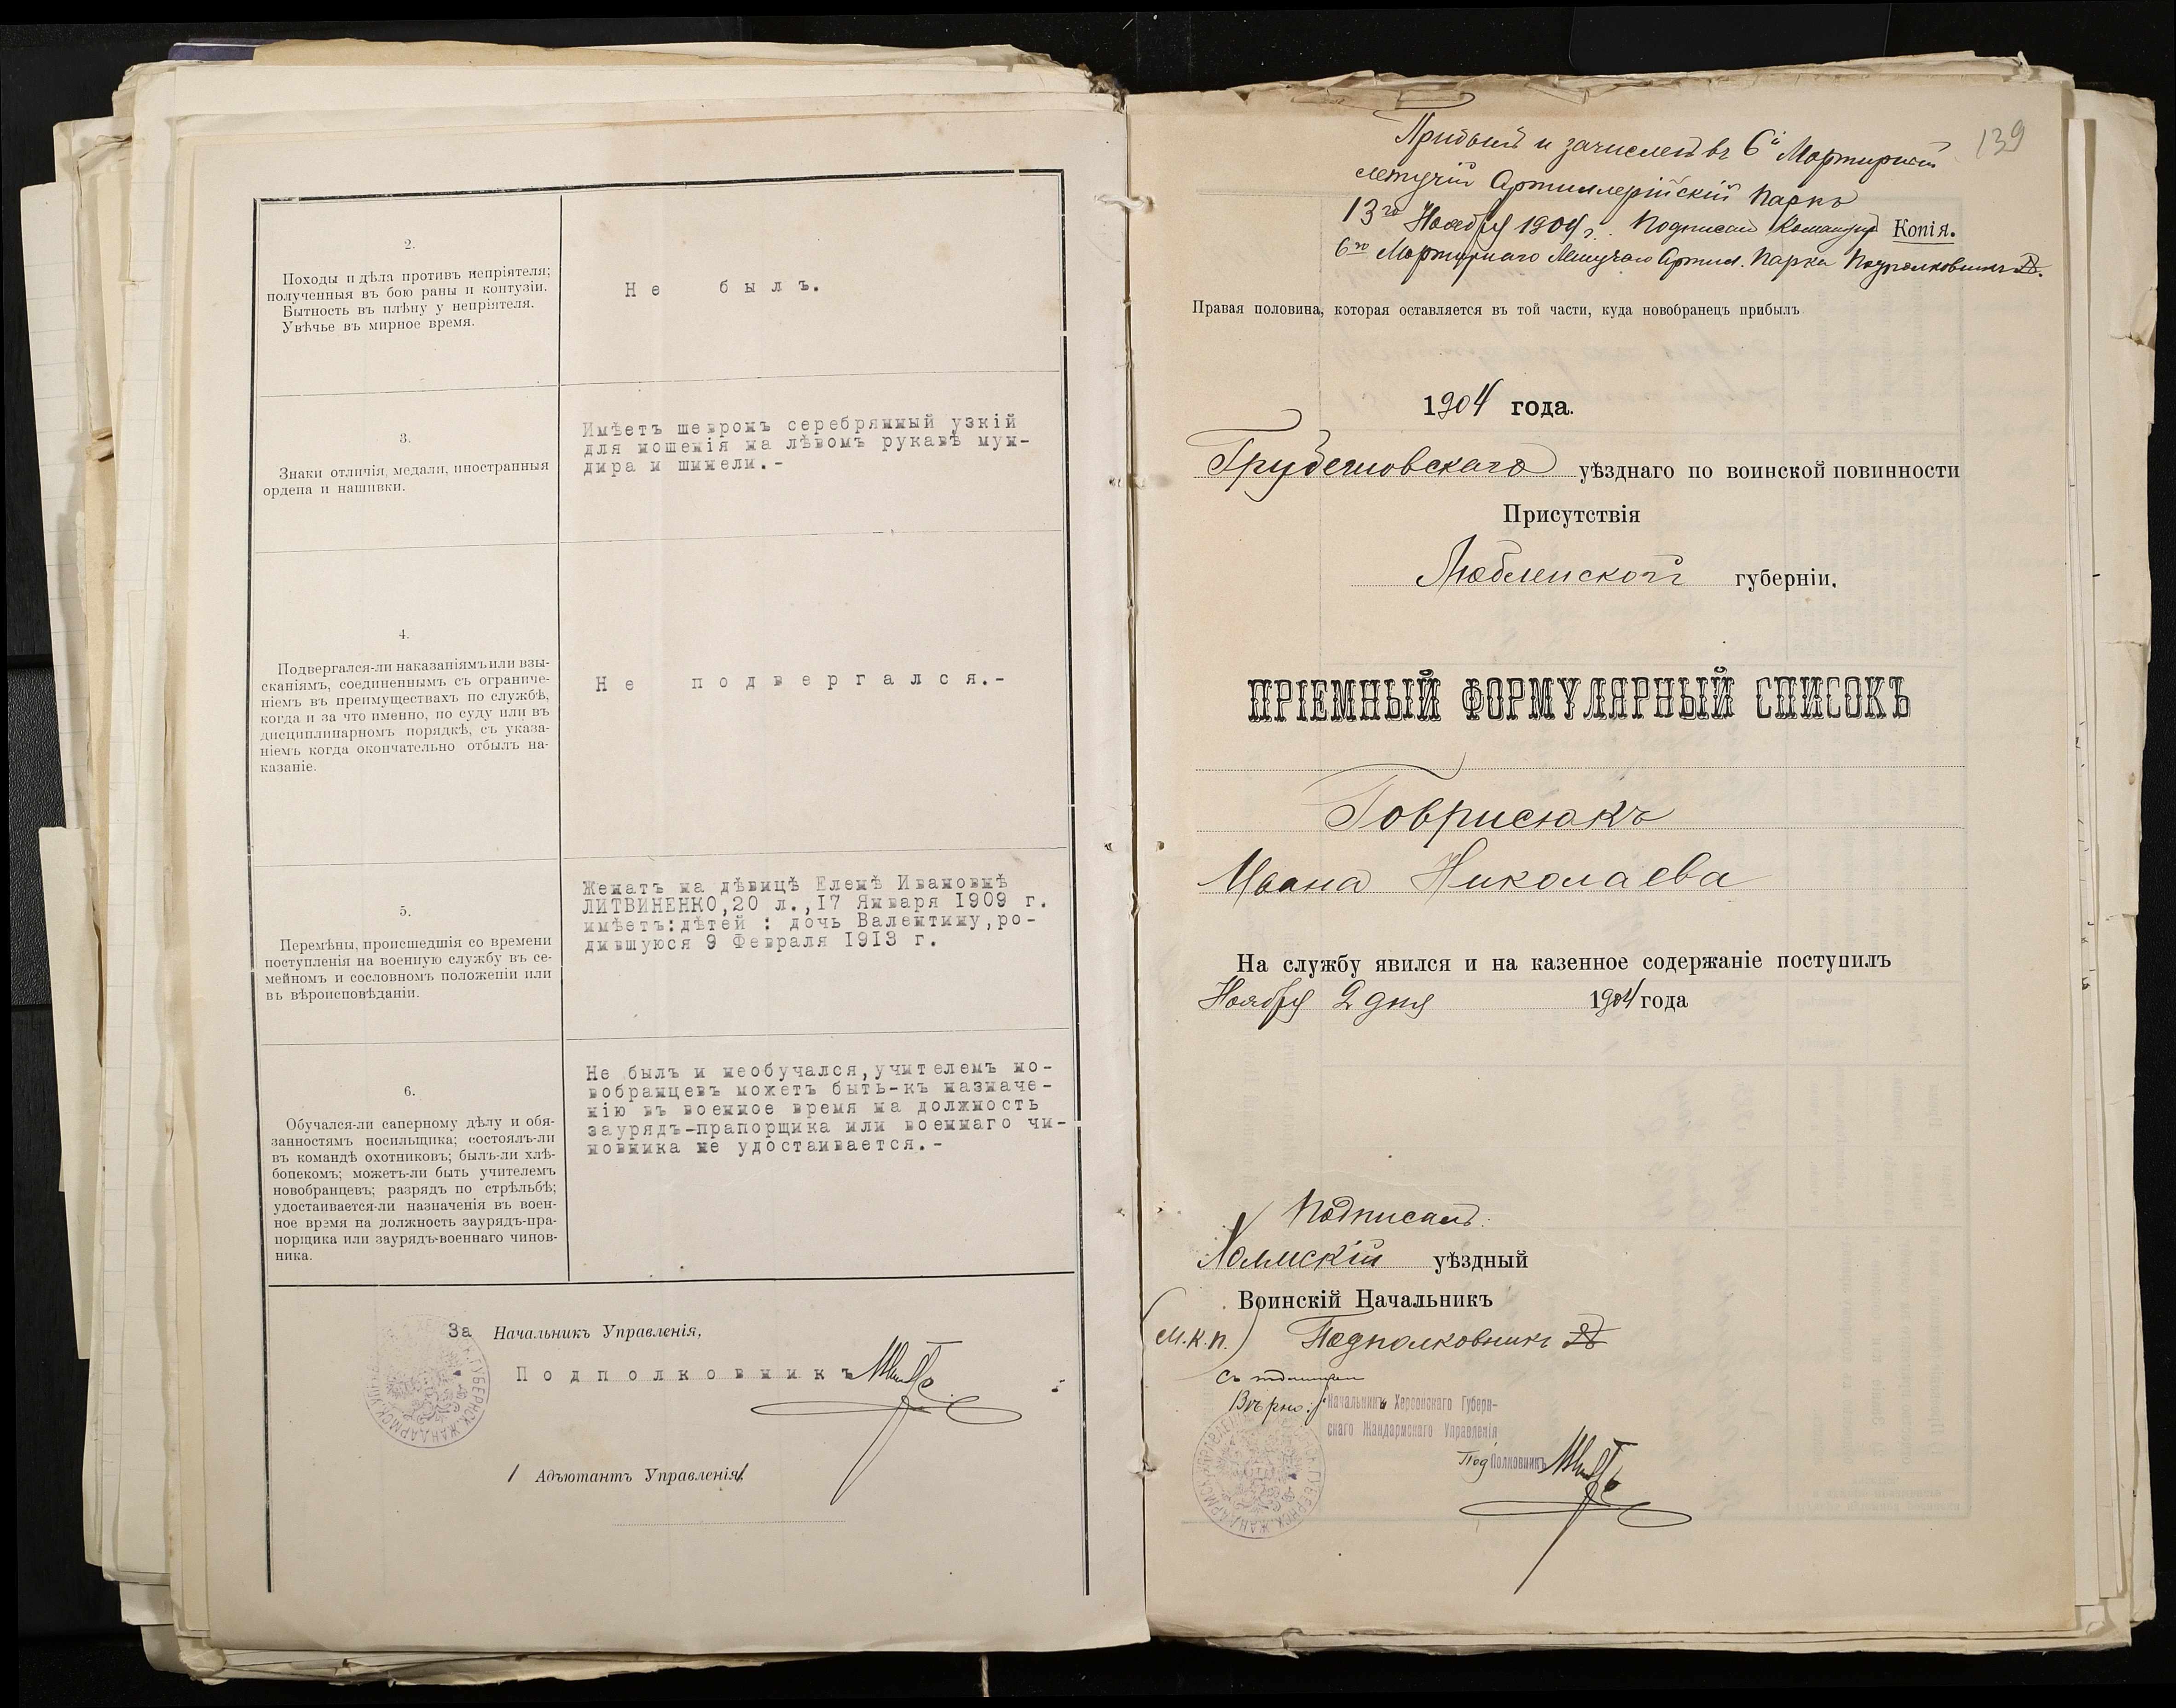 2.
Походы и дѣла противъ непріятеля;
полученныя въ бою раны и контузіи.
Бытность въ плѣну у непріятеля.
Увѣчье въ мирное время.
Не былъ.
3.
Знаки отличія, медали, иностранныя
ордена и нашивки.
Имѣетъ шевронъ серебрянный узкій
для ношенія на лѣвомъ рукавѣ мун-
дира и шинели.-
4.
Подвергался-ли наказаніямъ или взы-
сканіямъ, соединеннымъ съ ограниче-
ніемъ въ преимуществахъ по службѣ,
когда и за что именно, по суду или въ
дисциплинарномъ порядкѣ, съ указа-
ніемъ когда окончательно отбылъ на-
казаніе.
Не подвергался.-
5.
Перемѣны, происшедшія со времени
поступленія на военную службу въ се-
мейномъ и сословномъ положеніи или
въ вѣроисповѣданіи.
Женатъ на дѣвицѣ Еленѣ Ивановнѣ
ЛИТВИНЕНКО,20 л.,17 Января 1909 г.
имѣетъ:дѣтей : дочь Валентину,ро-
дившуюся 9 Февраля 1913 г.
6.
Обучался-ли саперному дѣлу и обя-
занностямъ носильщика; состоялъ-ли
въ командѣ охотниковъ; былъ-ли хлѣ-
бопекомъ; можетъ-ли быть учителемъ
новобранцевъ; разрядъ по стрѣльбѣ;
удостаивается-ли назначенія въ воен-
ное время на должность заурядъ-пра-
порщика или заурядъ-военнаго чинов-
ника.
Не былъ и необучался,учителемъ но-
вобранцевъ можетъ быть-къ назначе-
нію въ военное время на должность
заурядъ-прапорщика или военнаго чи-
новника не удостаивается.-
За Начальникъ Управленія,
Подполковникъ
/ Адъютантъ Управленія/
139
Прибылъ и зачисленъ въ 6й Мортирный
летучій Артиллерійскій паркъ
13го Ноября 1904 г. Подписалъ Командиръ Копія.
6го Мортирнаго Летучаго Артил. Парка Подполковникъ
Правая половина, которая оставляется въ той части, куда новобранецъ прибылъ
1904 года.
Грубешовскаго уѣзднаго по воинской повинности
Присутствія
Люблинской губерніи.
ПРІЕМНЫЙ ФОРМУЛЯРНЫЙ СПИСОКЪ
Говрисюкъ
Ивана Николаева
На службу явился и на казенное содержаніе поступилъ
Ноября 2 дня 1904 года
Подписалъ:
Холмскій уѣздный
Воинскій Начальникъ
(М.К.П.) Подполковникъ
Съ подлиннымъ
Вѣрно: Начальникъ Херсонскаго Губерн-
скаго Жандармскаго Управленія
Подполковникъ